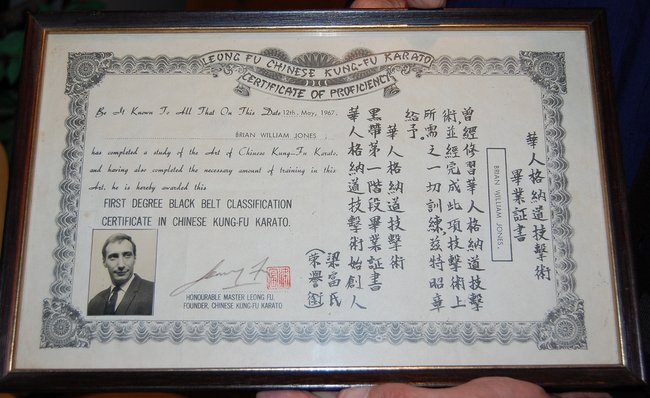 LEONG FU CHINESE KUNG-FU KARATO
CERTIFICATE OF PROFICIENCY
Be It Known To All That On This Date 12th, May, 1967.
BRIAN WILLIAM JONES ,
has completed a study of the Art of Chinese Kung-Fu Karato,
and having also completed the necessary amount of training in this
Art, he is hereby awarded this
FIRST DEGREE BLACK BELT CLASSIFICATION
CERTIFICATE IN CHINESE KUNG-FU KARATO.
HONOURABLE MASTER LEONG FU,
FOUNDER, CHINESE KUNG-FU KARATO
華人格納道技擊術
畢業証書
BRIAN WILLIAM JONES.
曾經修習華人格納道技擊
術,並經完成此項技擊術上
所需之一切訓練,茲特昭章
給予。
華人格納道技擊術
黑帶第一階段畢業証書
華人格納道技擊術始創人
梁富氏
(榮譽銜)